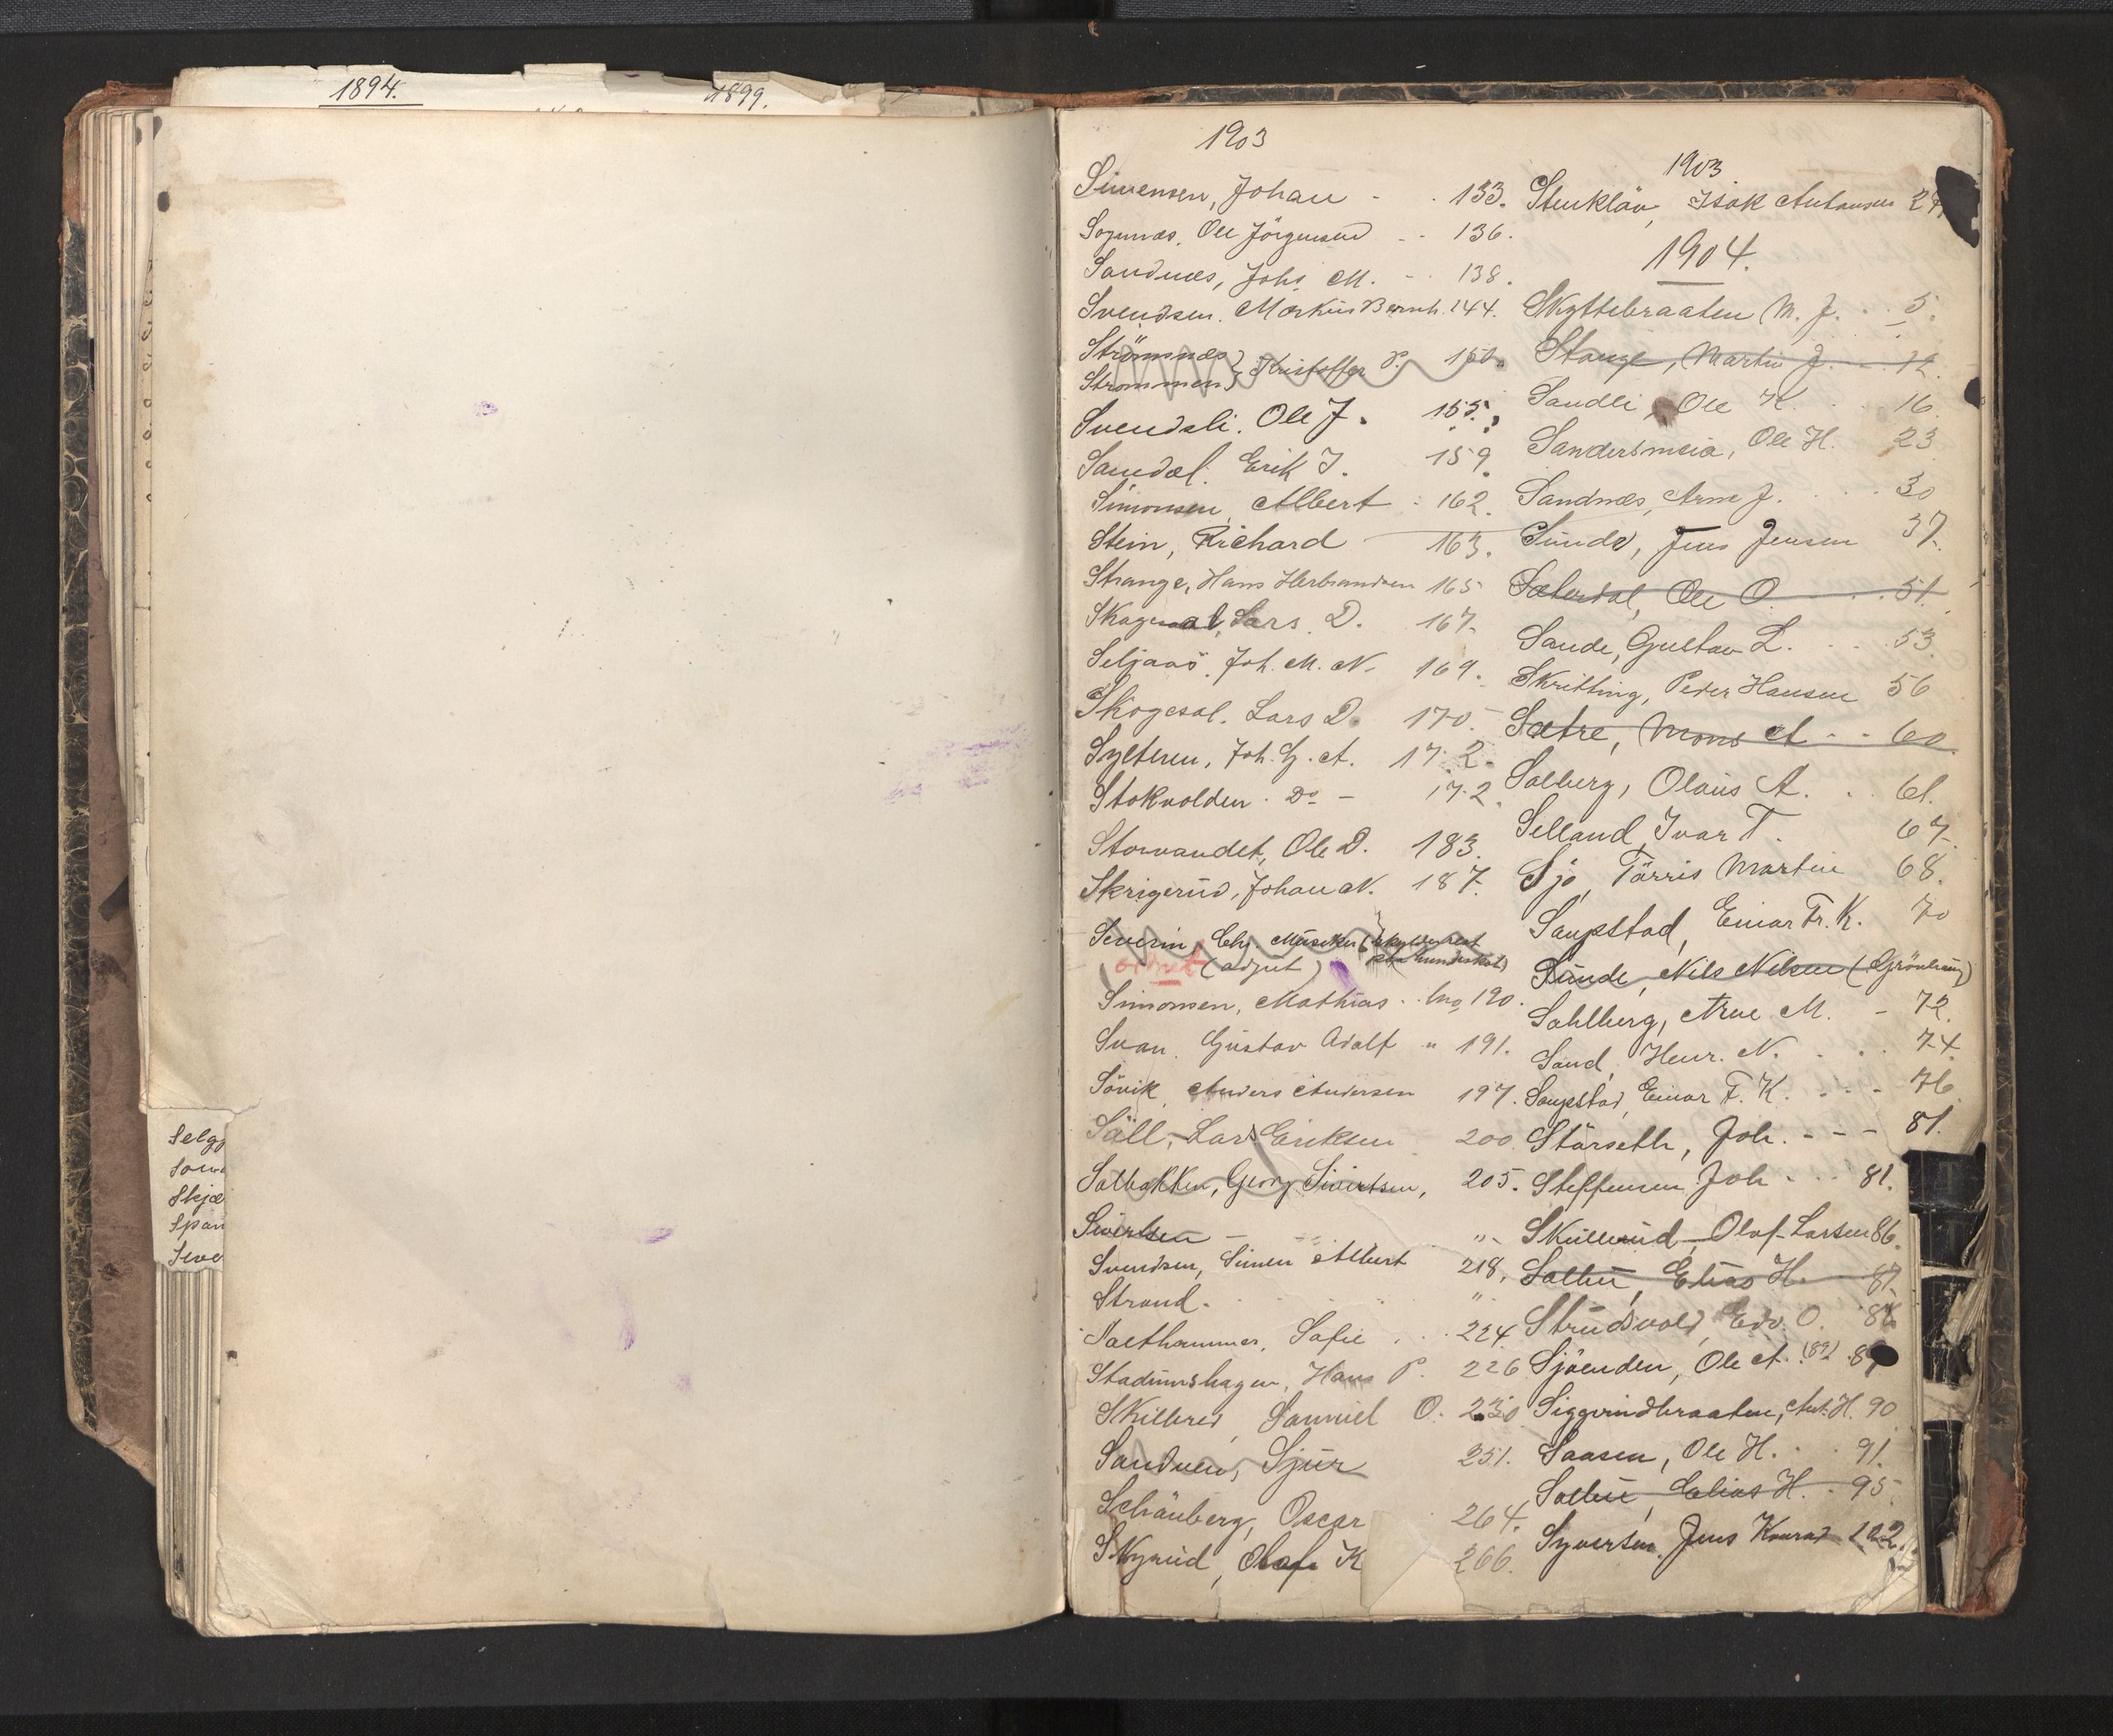 1894.
1899.
Selgj
Skjæ
Span
Seve
1903
Simensen, Johan - . 133.
Sognnæs, Ole Jörgensen - - 136.
Sandnæs, Johs M. - . 138.
Svendsen, Markus Bernh. 144.
Strömsnæs
Strömmen } Kristoffer P. 150.
Svendsli. Ole J. 155.
Samdal. Erik J. 159.
Simonsen, Albert - 162.
Stein, Richard 163.
Strange, Hans Herbrandsen 165
Lars D. 167.
Seljaas. Joh. M. N. 169.
Skogesal. Lars D. 170.
Sylteren, Joh. G. A. 172.
Stokvolden. Do - 172.
Storvandet, Ole D. 183.
Skrigerud, Johan N. 187.
Severin, Chr. Musiker
ordnet (adjut)
Simonsen, Mathias . . 190.
Svan. Gustav Adolf " 191.
Sövik, Anders Andersen 197.
Säll, Lars Eriksen 200
Solbakken, Georg Sivertsen, 205.
Sivertsen - "
Svendsen, Simen Albert 218.
Strand. "
Salthammer, Sofie . . . 224.
Stadumshagen, Hans P. 226
Skilbred, Samuel O. 230
Sandven, Sjur 251.
Schänberg, Oscar 264.
Skyrud, Olaf K 266.
1903
Stenkläv, Isak Antonsen
1904.
Skyttebraaten M. J. . . 5.
Stange, Martin J. . . . 12.
Sandli, Ole K. . . 16.
Sandersmoia, Ole H. 23
Sandnæs, Arne J. . . . 30
Sunde, Jens Jensen 37.
Sæterdal, Ole O. . . . 51.
Sande, Gustav L. . . . 53.
Skritting, Peder Hansen 56
Sætre, Mons A - - 60.
Solberg, Olaus A. . . 61.
Selland, Ivar T. 67.
Sjö, Törris Martin 68.
Saupstad, Einar Fr. K. 70
Sunde, Nils Nilsen
Sahlberg, Arne M. - 72.
Sand, Henr. N. . . . 74.
Saupstad, Einar F. K. . . - 76
Störseth, Joh. - - - 81.
Steffensen Joh - . . 81.
Skullerud, Olaf Larsen 86.
Solbu, Elias H. 87.
Strudsvold, Edv. O. 88
Sjöenden, Ole A. (89)
Siggerudbraaten, Ant. H. 90
Saasen, Ole H. . . 91.
Solbu, Elias H. . 95.
Syversen, Jens Konrad 102.